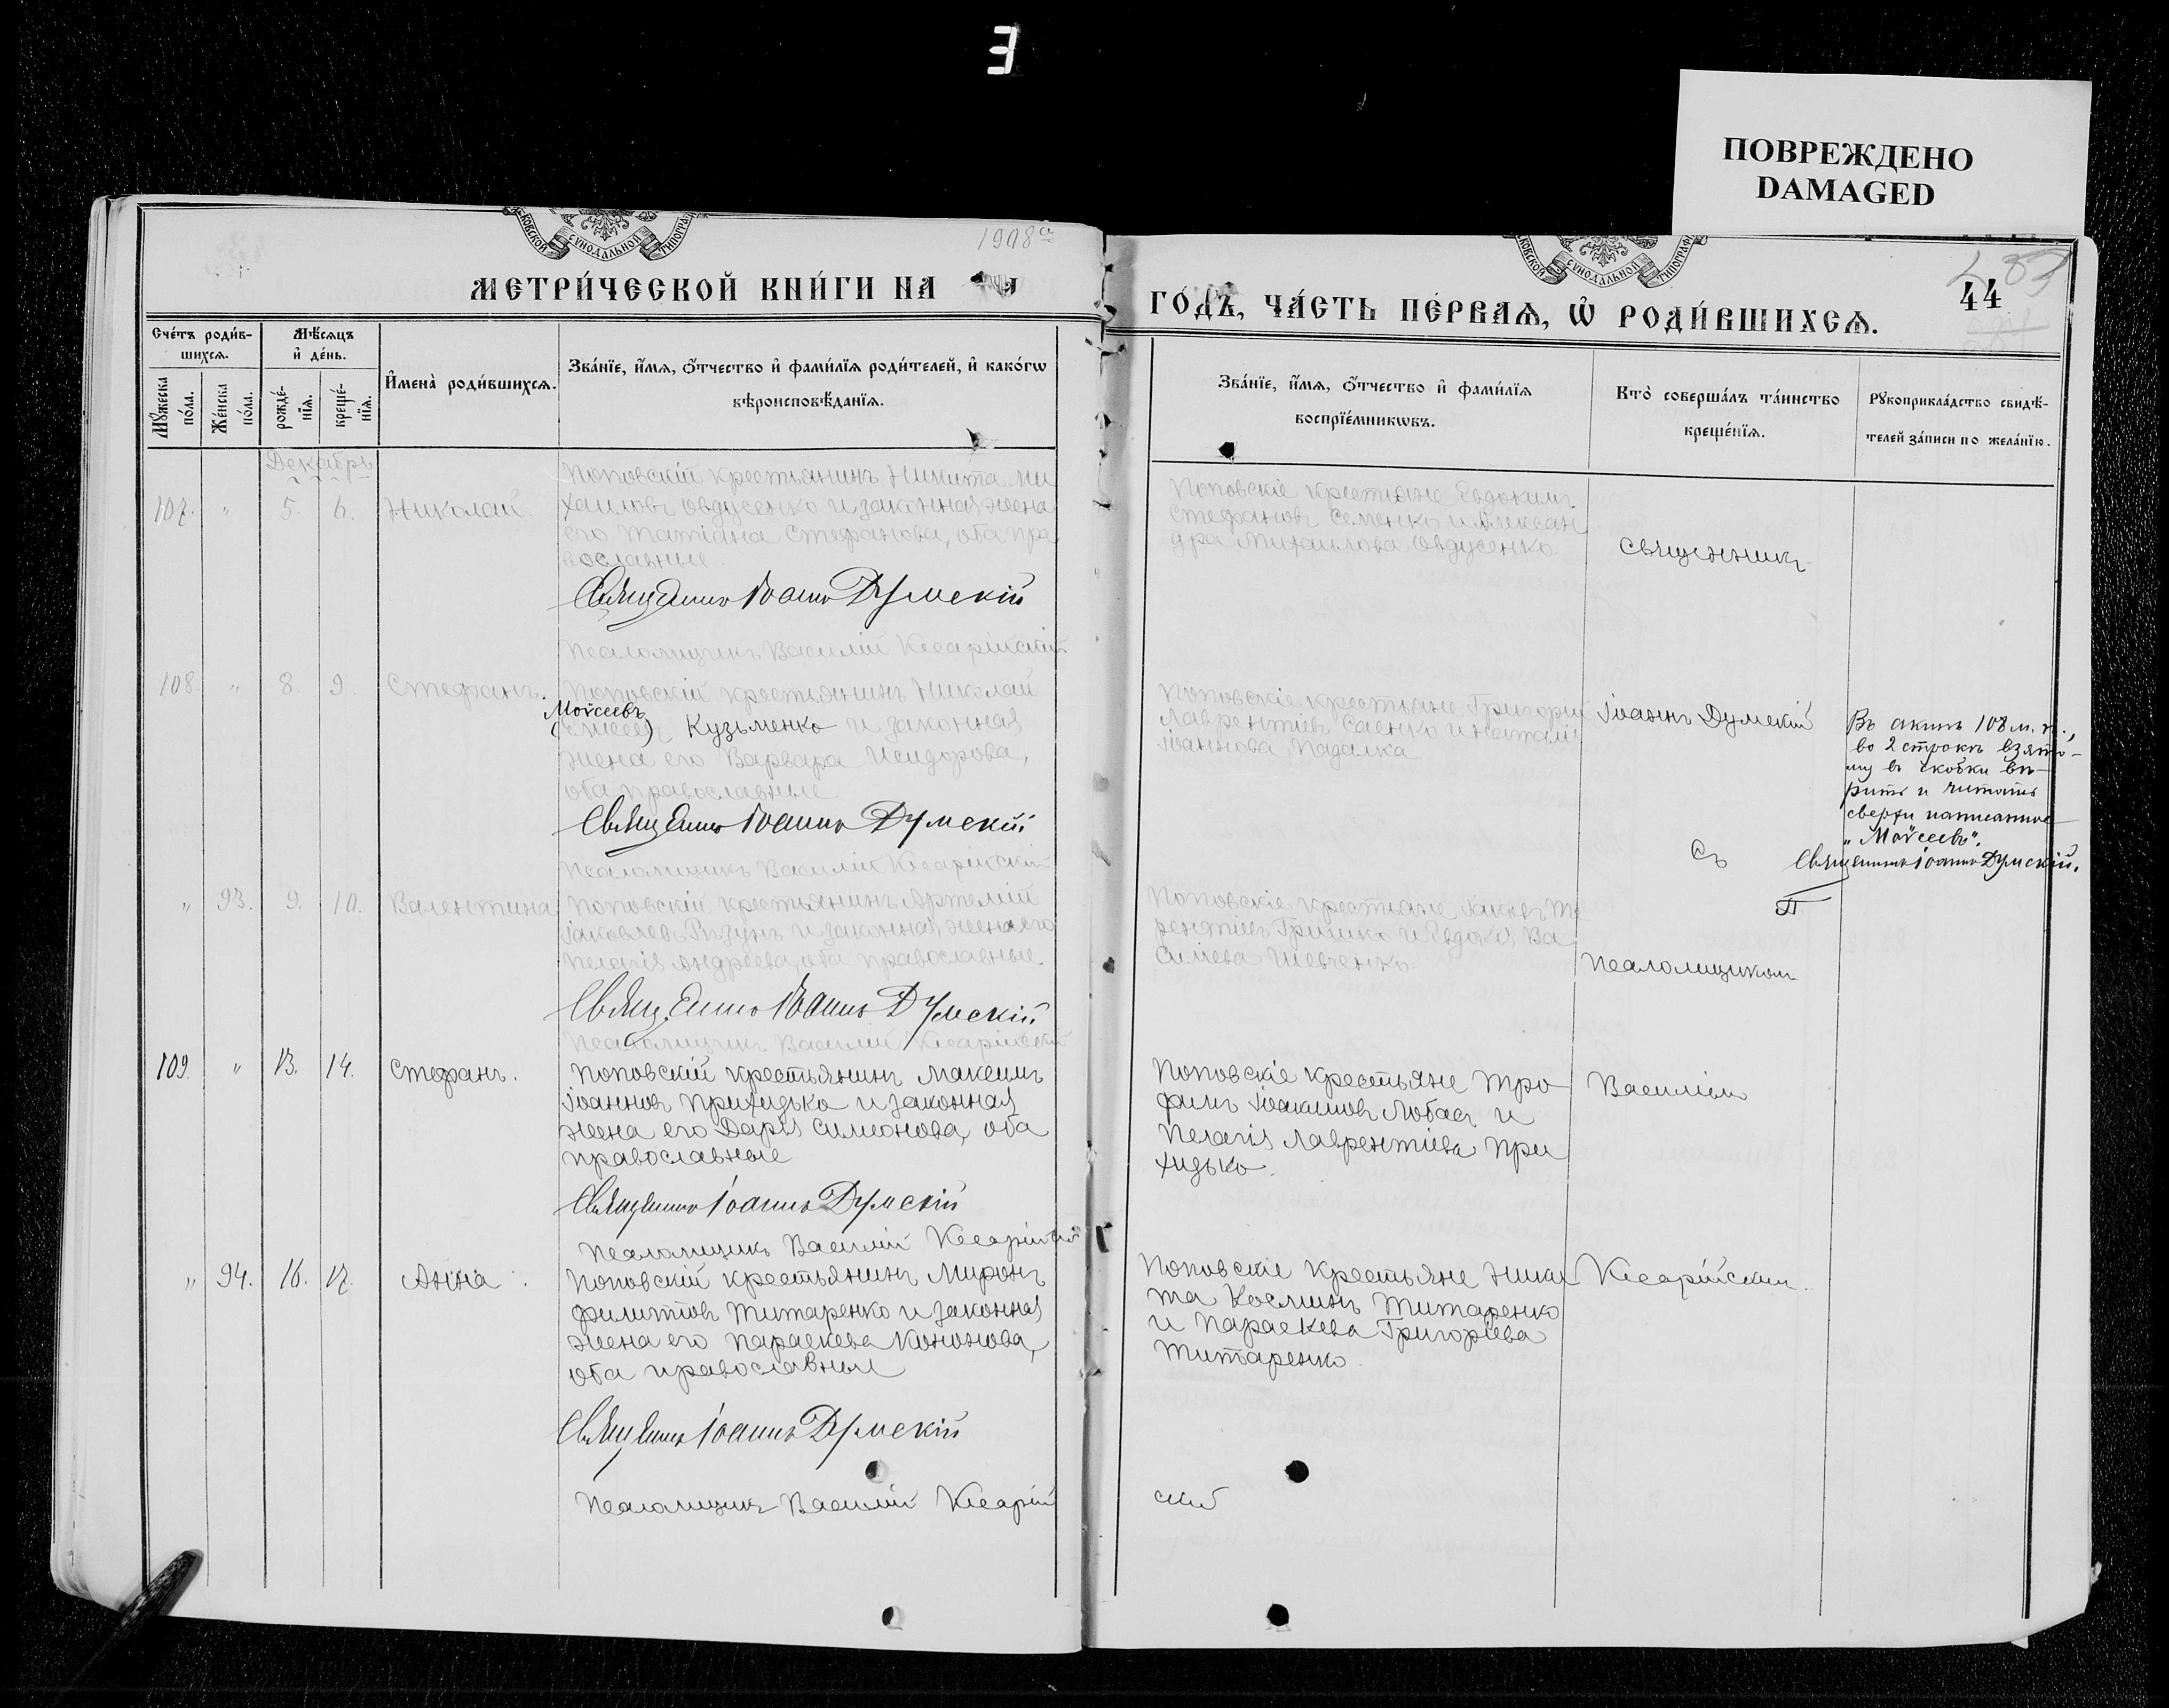 ПОВРЕЖДЕНО
DAMAGED
1908
МЕТРИ́ЧЕСКОЙ КНИ́ГИ НА
ГО́ДЪ, ЧА́СТЬ ПЕ́РВАѦ, Ѡ҆ РОДИ́ВШИХСѦ.
44
Сче́тъ роди́в-
шихсѧ.
Мѣ́сѧцъ
и҆ де́нь.
Мꙋ́жеска по́ла.
Же́нска по́ла.
рожде́-нїѧ.
креще́-нїѧ.
И҆мена̀ роди́вшихсѧ.
Зва́нїе, и҆́мѧ, ѻ҆́тчество и҆ фами́лїѧ роди́телей, и҆ како́гѡ
вѣроисповѣ́данїѧ.
Зва́нїе, и҆́мѧ, ѻ҆́тчество и҆ фами́лїѧ
воспрїе́мникѡвъ.
Кто̀ соверша́лъ та́инство
креще́нїѧ.
Рꙋкоприкла́дство свидѣ́-
телей за́писи по жела́нїю.
Декабрь
107. " 5. 6. Николай.
Поповскій крестьянинъ Никита Ми
хаиловъ Овдусенко и законная жена
его Татіана Стефанова, оба пра
вославные
Священникъ Іоаннъ Думскій
Псаломщикъ Василій Кесарійскій
Поповскіе крестьяне Евдокимъ
Стефановъ Семенко и Алексан
дра Михаилова Овдусенко
Священникъ
108. " 8. 9. Стефанъ.
Поповскій крестьянинъ Николай
Моѵсеевъ
Кузьменко и законная
жена его Варвара Исидорова,
оба православные
Священникъ Іоаннъ Думскій
Псаломщикъ Василій Кесарійскій
Поповскіе крестьяне Григорій
Лаврентіевъ Саенко и Наталія
Іоаннова Падалка
Іоаннъ Думскій
Въ актѣ 108 м. п.,
во 2 строкѣ взято-
му въ скобки вѣ-
рить и читать
сверху написанное
„Моѵсеевъ".
Священникъ Іоаннъ Думскій.
Съ
" 93. 9. 10. Валентина
Поповскій крестьянинъ Артемій
Іаковлевъ Рѣзунъ и законная жена его
Пелагія Андреева, оба православные.
Священникъ Іоаннъ Думскій
Псаломщикъ Василій Кесарійскій
Поповскіе крестьяне Іаковъ Те
рентіевъ Гришко и Евдокія Ва
силіева Шевченко.
Псаломщикомъ
109. " 13. 14. Стефанъ.
Поповскій крестьянинъ Максимъ
Іоанновъ Прихидько и законная
жена его Дарія Симеонова, оба
православные
Священникъ Іоаннъ Думскій
Псаломщикъ Василій Кесарійскій
Поповскіе крестьяне Тро
фимъ Іоакимовъ Лобасъ и
Пелагія Лаврентіева При
хидько.
Василіемъ
" 94. 16. 17. Анна.
Поповскій крестьянинъ Миронъ
Филиповъ Титаренко и законная
жена его Параскева Кононова,
оба православные
Священникъ Іоаннъ Думскій
Поповскіе крестьяне Ники
та Косминъ Титаренко
и Параскева Григоріева
Титаренко.
Кесарійскимъ.
Псаломщикъ Василій Кесарій
скій